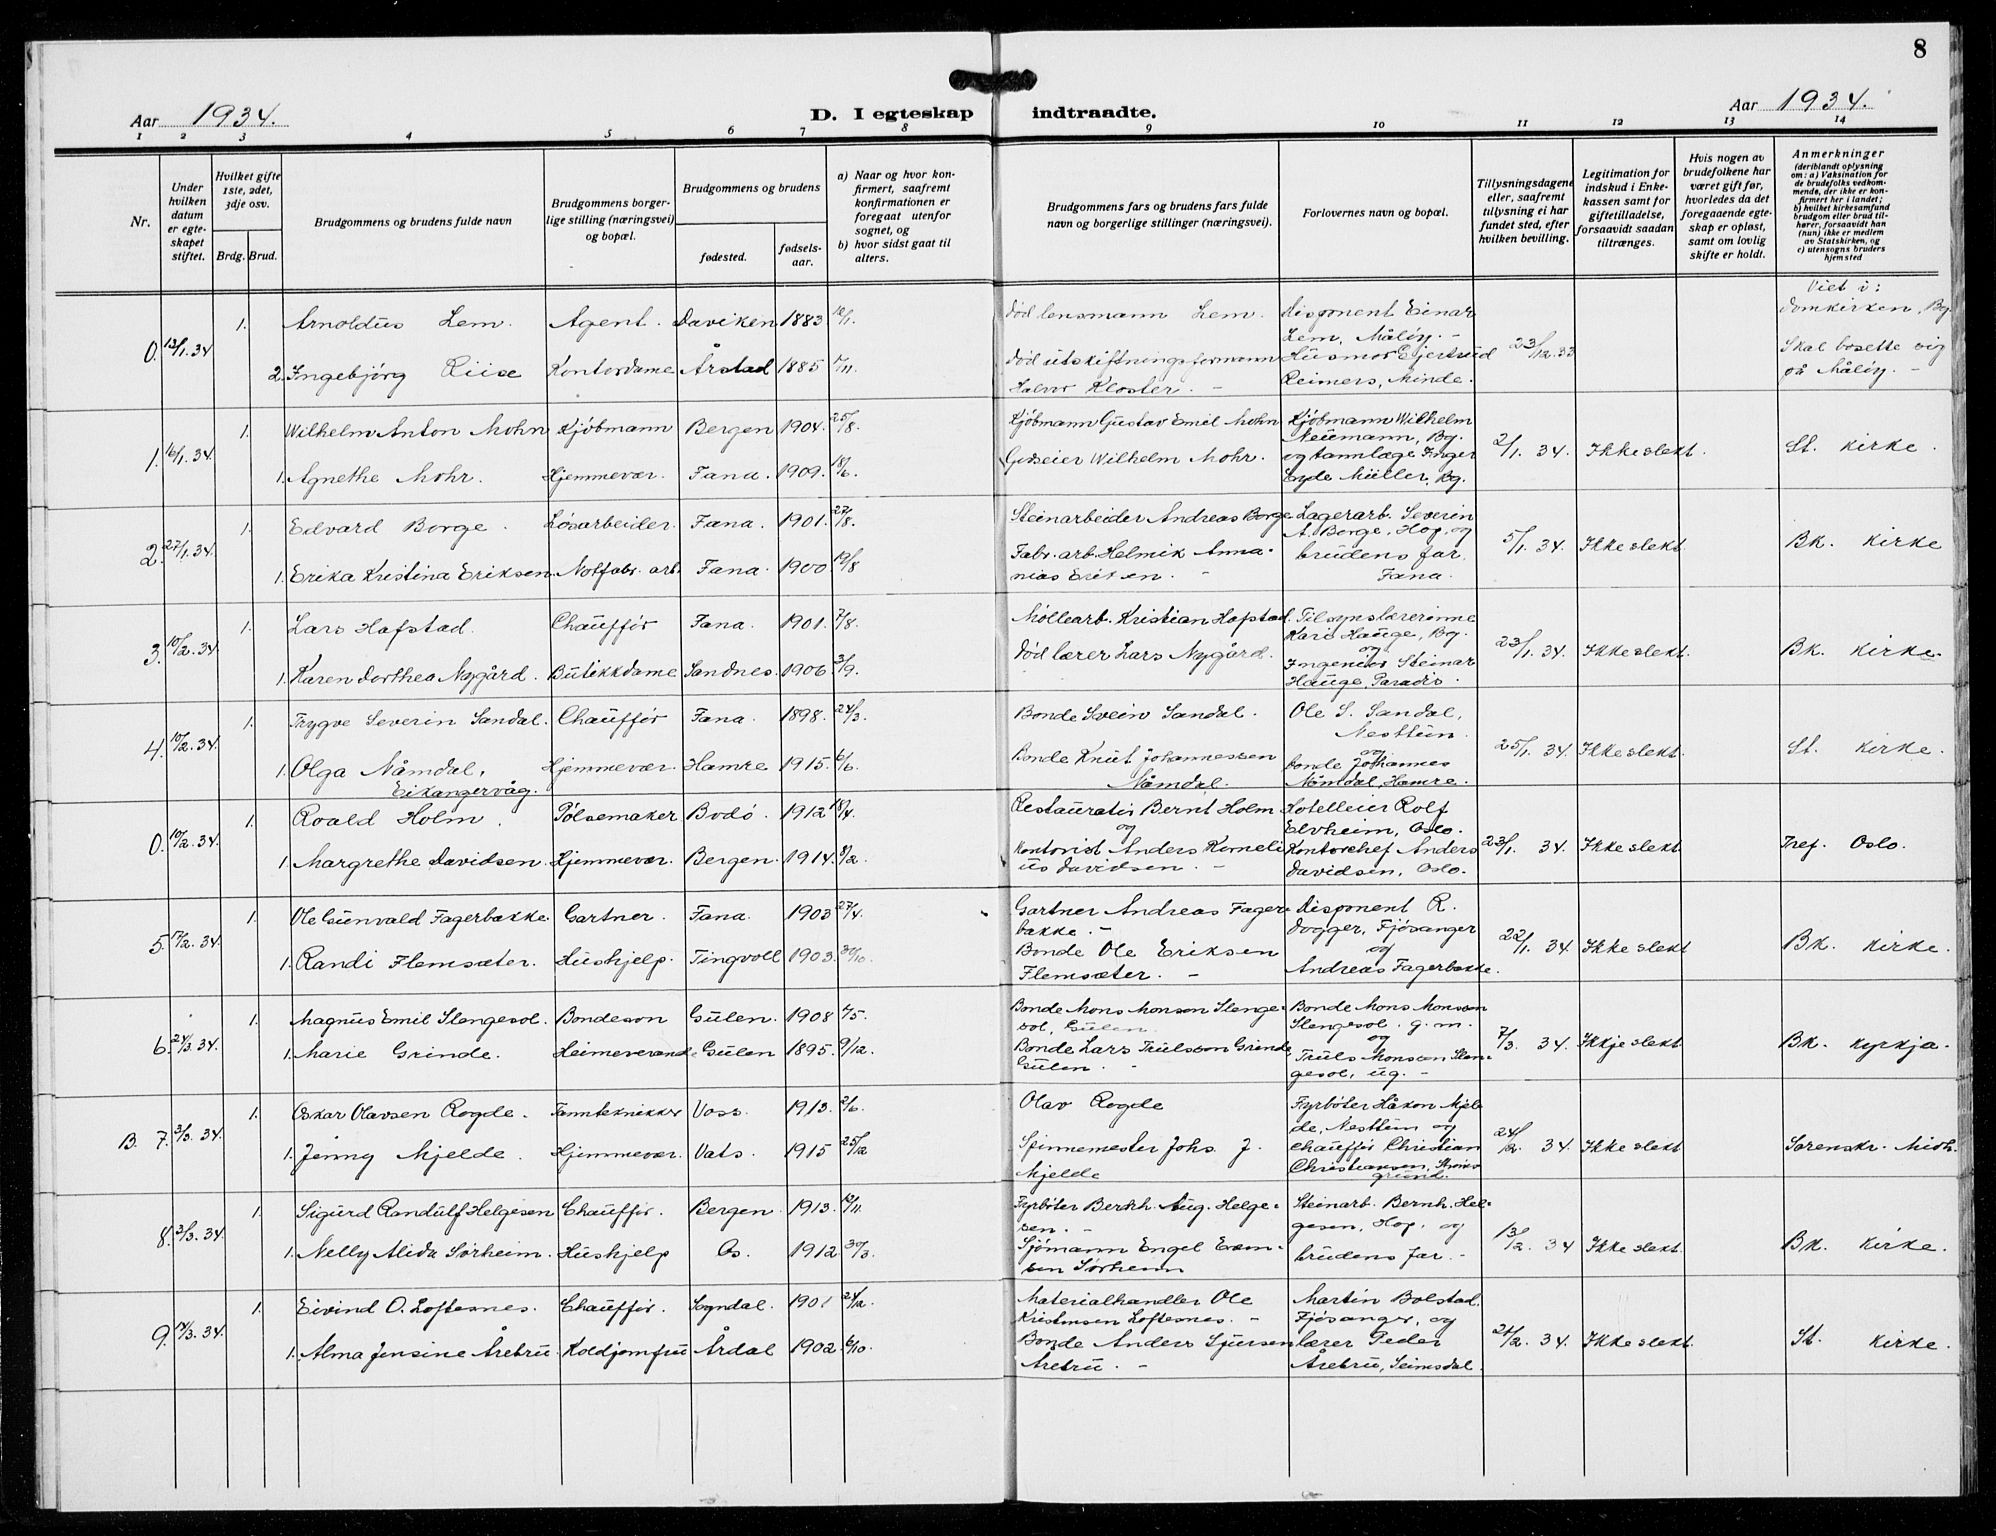 8
Aar 1934.
D. I egteskap indtraadte.
Aar 1934.
1 2 3 4 5 6 7 8 9 10 11 12 13 14
Nr.
Under hvilken datum er egteskapet stiftet.
Hvilket gifte 1ste, 2det, 3dje osv.
Brdg. Brud.
Brudgommens og brudens fulde navn
Brudgommens borgerlige stilling (næringsvei) og bopæl.
Brudgommens og brudens
fødested.
fødselsaar.
a) Naar og hvor konfirmert, saafremt konfirmationen er foregaat utenfor sognet, og
b) hvor sidst gaat til alters.
Brudgommens fars og brudens fars fulde navn og borgerlige stillinger (næringsvei).
Forlovernes navn og bopæl.
Tillysningsdagene eller, saafremt tillysning ei har fundet sted, efter hvilken bevilling.
Legitimation for indskud i Enkekassen samt for giftetilladelse, forsaavidt saadan tiltrænges.
Hvis nogen av brudefolkene har været gift før, hvorledes da det foregaaende egteskap er opløst, samt om lovlig skifte er holdt.
Anmerkninger
(deriblandt oplysning om: a) Vaksination for de brudefolks vedkommende, der ikke er konfirmert her i landet;
b) hvilket kirkesamfund brudgom eller brud tilhører, forsaavidt han (hun) ikke er medlem av Statskirken, og
c) utensogns bruders hjemsted
0. 13/1.34 1. Arnoldus Lem. Agent. Daviken 1883 Død lensmann Lem. Disponent Einar Lem, Måløy. - 23/12.33 Viet i: Domkirken, Bg
2. Ingebjørg Riise Kontordame Årstad 1885 Død utskiftningsformann Halvor Kloster. - Husmor Gjertrud Reimers, Minde. Skal bosette sig på Måløy. -
1. 16/1.34. 1. Wilhelm Anton Mohn Kjøbmann Bergen 1904. 25/8. Kjøbmann Gustav Emil Mohn Kjøbmann Wilhelm Neumann, Bg. 2/1. 34 Ikke slekt. St. kirke.
1. Agnethe Mohr. Hjemmevær. Fana. 1909. 18/6. Godseier Wilhelm Mohr. og tannlæge Inger Eyde Müller, Bg.
2. 27/1.34. 1. Edvard Borge. Løsarbeider. Fana. 1901. 27/8. Steinarbeider Andreas Borge Lagerarb. Severin A. Borge, Hop, og 5/1. 34. Ikke slekt. Bk. kirke
1. Erika Kristina Eriksen Notfabr. arb. Fana. 1900. 19/8 Fabr. arb. Helmik Annanias Eriksen. - brudens far, Fana.
3. 10/2.34 1. Lars Hafstad. Chauffør Fana. 1901. 7/8. Møllearb. Kristian Hafstad. Tilsynslærerinne Kari Hauge, Bg. og 23/1. 34. Ikke slekt. Bk. kirke.
1. Karen Dorthea Nygård. Butikkdame Sandnes. 1906 3/9. Død lærer Lars Nygård. Ingeniør Steinar Hauge, Paradis.
4. 10/2.34. 1. Trygve Severin Sandal. Chauffør Fana. 1898. 24/3. Bonde Svein Sandal. Ole S. Sandal, Nesttun. og 25/1. 34. Ikke slekt. St. kirke.
1. Olga Nåmdal, Eikangervåg. Hjemmevær. Hamre 1915. 6/6. Bonde Knut Johannessen Nåmdal. bonde Johannes Nåmdal, Hamre.
0. 10/2.34. 1. Roald Holm. Pølsemaker Bodø. 1912 18/4. Restauratør Bernt Holm og Hotelleier Rolf Elvheim, Oslo. 23/1. 34. Ikke slekt. Tref. Oslo.
1. Margrethe Davidsen. Hjemmevær. Bergen. 1914. 8/2. Kontorist Anders Kornelius Davidsen. - Kontorchef Anders Davidsen, Oslo.
5. 17/2.34. 1. Ole Gunvald Fagerbakke. Gartner. Fana. 1903 27/4. Gartner Andreas Fagerbakke. - Disponent R. Dogger, Fjøsanger og 22/1. 34. Ikke slekt Bk. kirke.
1. Randi Flemsæter. Hushjelp. Tingvoll 1903. 30/10. Bonde Ole Eriksen Flemsæter. - Andreas Fagerbakke.
6. 24/3.34. 1. Magnus Emil Slengesol. Bondeson Gulen. 1908 Bonde Mons Monsen Slengesol, Gulen. Bonde Mons Monsson Slengesol. g. m. og 7/3. 34. Ikkje slekt Bk. kyrkja.
1. Marie Grinde. Heimeverande Gulen 1895. 9/12. Bonde Lars Trulsson Grinde Gulen. - Truls Monsson Slengesol, ug. -
B. 7. 3/3.34. 1. Oskar Olavsen Rogde. Tannteknikker Voss. 1913. 2/6. Olav Rogde Fyrbøter Håkon Mjelde, Nesttun og 24/2. 34. Ikke slekt Sorenskr. Midh.
1. Jenny Mjelde. Hjemmevær. Vats. 1915 25/12 Spinnemester Johs. J. Mjelde chauffør Christian Christiansen,
8. 3/3.34. 1. Sigurd Randulf Helgesen Chauffør. Bergen 1913. Fyrbøter Bernh. Aug. Helgesen. - Steinarb. Bernh. Helgesen, Hop, og 13/2. 34 Ikke slekt. Bk. kirke.
1. Nelly Alida Sørheim. Hushjelp Os. 1912 30/3. Sjømann Engel Sørheim brudens far. -
9. 1. Eivind O. Loftesnes. Chauffør. Sogndal. 1901 Materialhandler Ole Kristensen Loftesnes. - Martin Bolstad, Fjøsanger, og 34. Ikke slekt. St. kirke.
1. Alma Jensine Årebru Koldjomfru Årdal 1902 6/10. Bonde Anders Sjursen Årebru. - lærer Peder Årebru, Seimsdal.